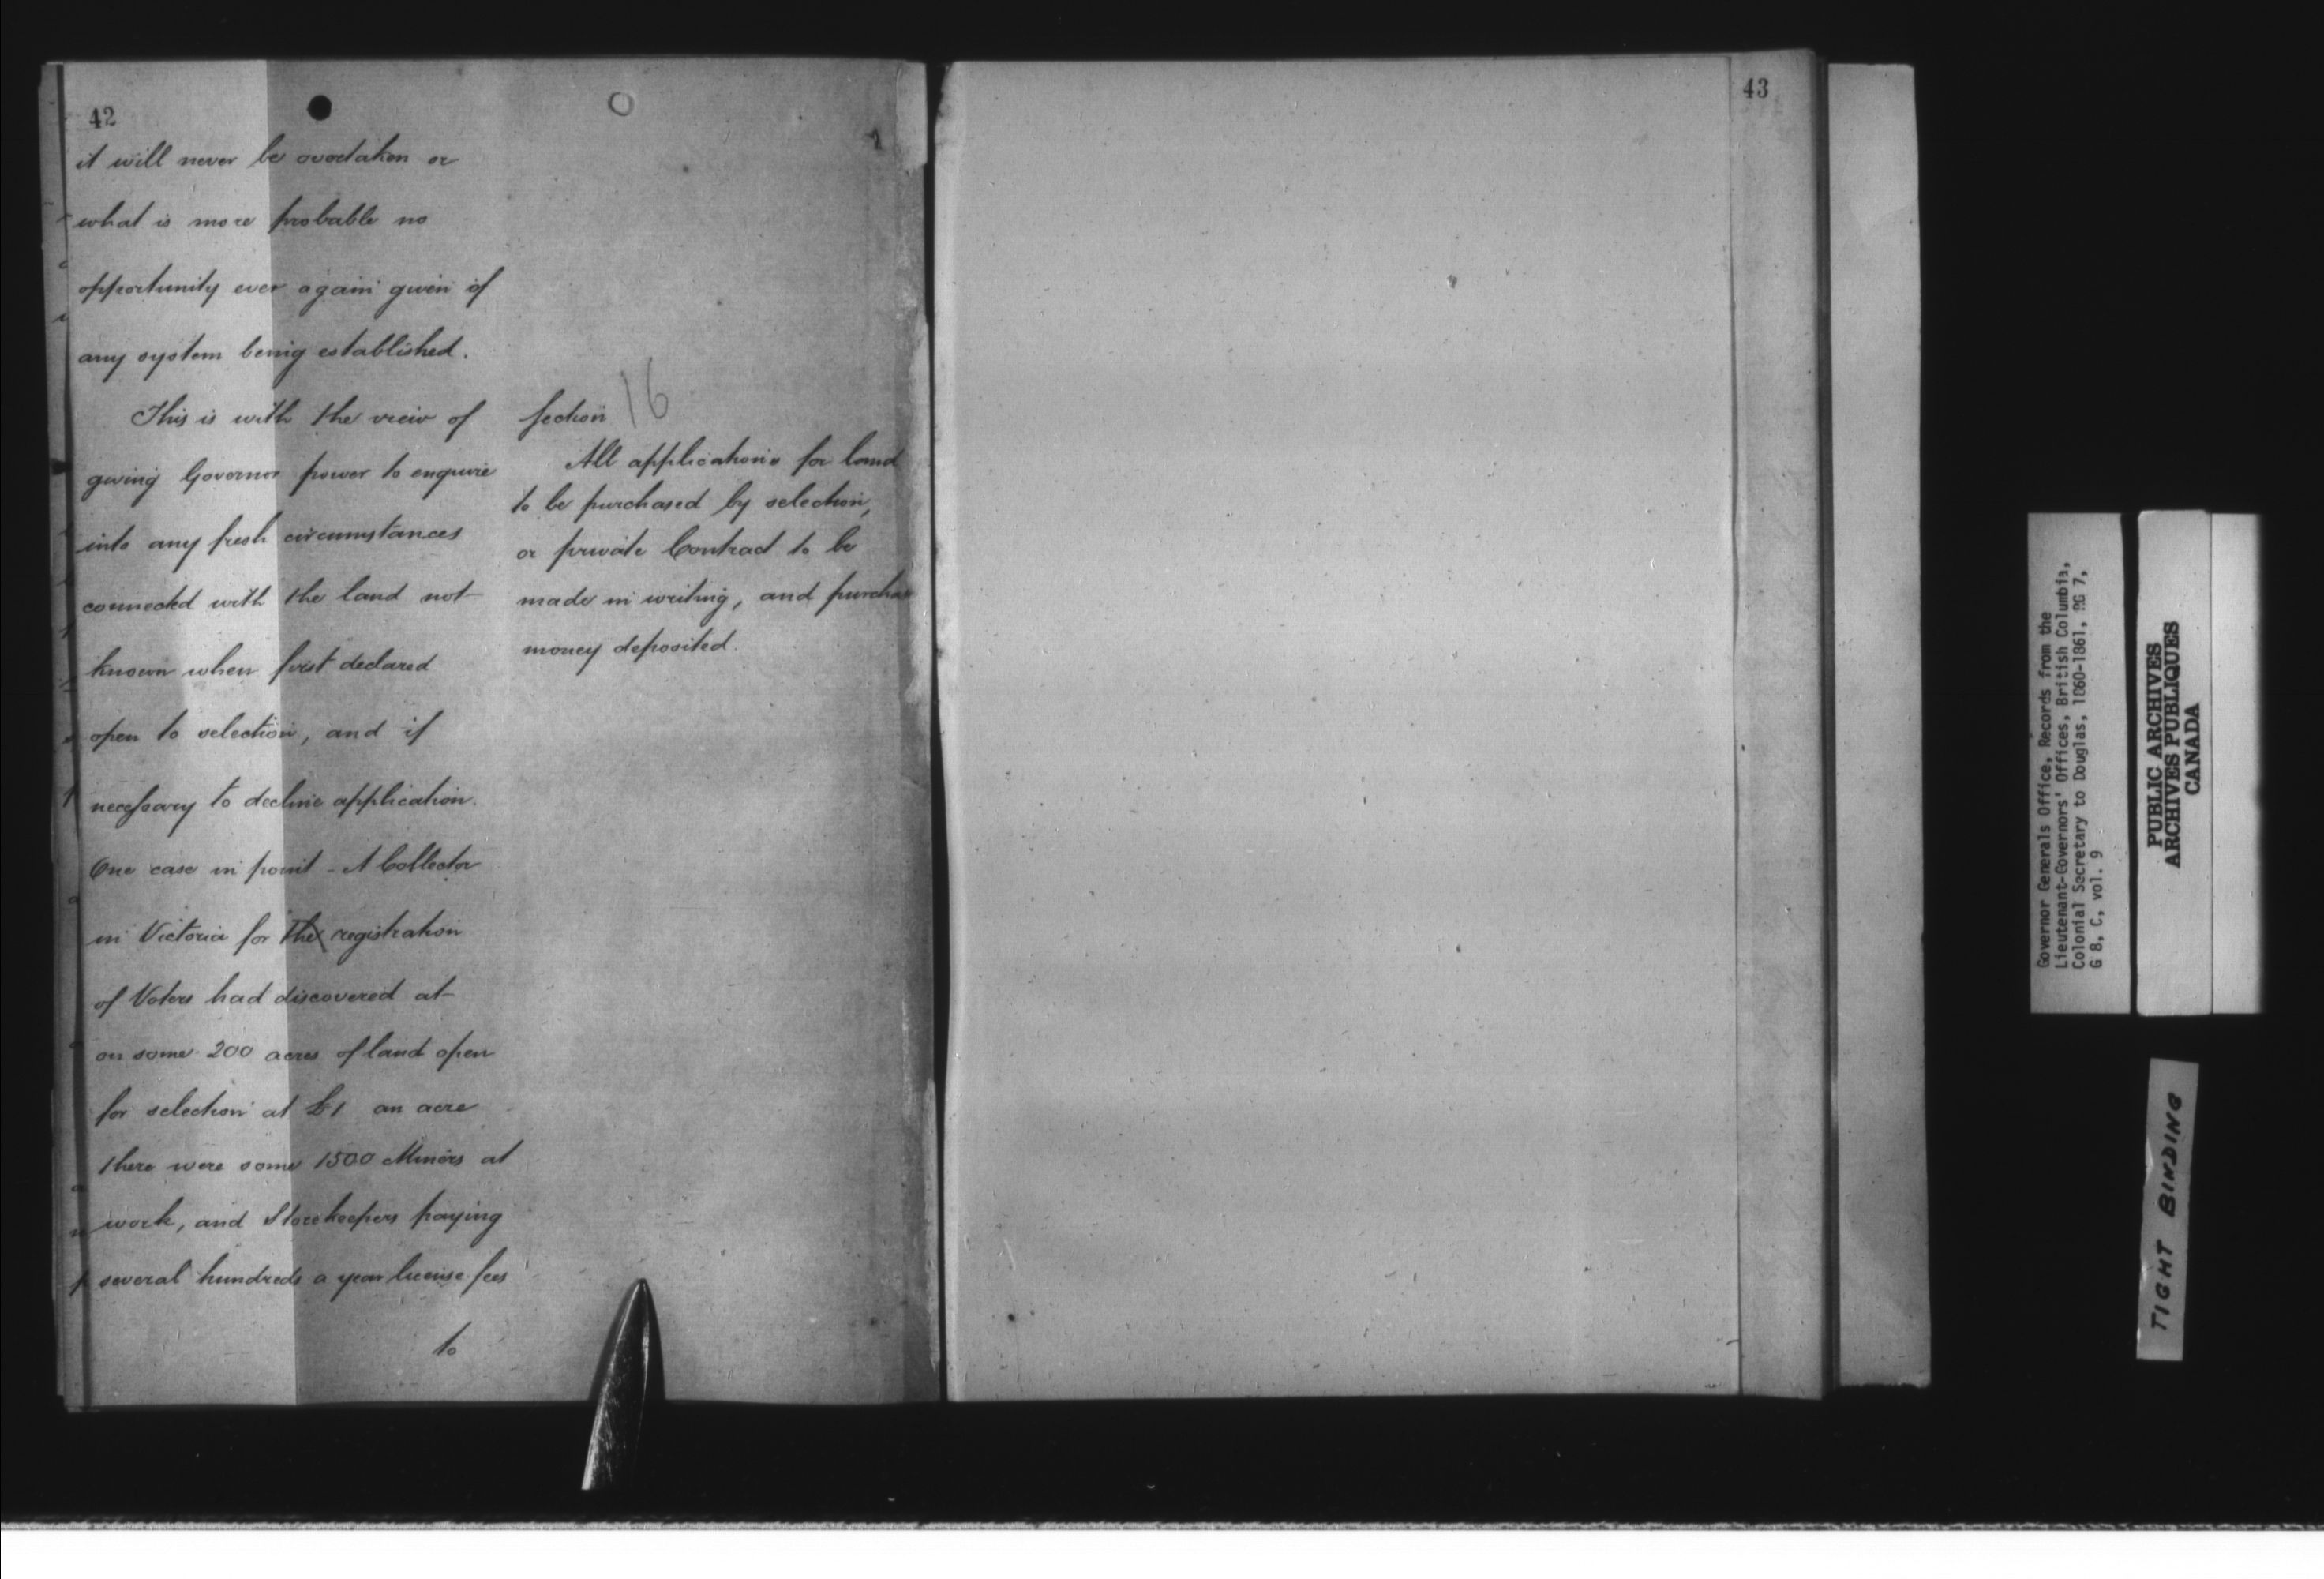 42
it will never be overtaken or
what is more probable no
opportunity ever again given of
any system being established.
This is with the view of
giving Governor power to enquire
into any fresh circumstances
connected with the land not
known when first declared
open to selection, and if
necessary to decline application.
One case in point - A Collector
in Victoria for the registration
of Voters had discovered at
on some 200 acres of land open
for selection at £1 an acre
there were some 1500 Miners at
work, and Storekeepers paying
several hundreds a year license fees
to
Section 16
All applications for land
to be purchased by selection,
or private Contract to be
made in writing, and purchase
money deposited.
43
Governor Generals Office, Records from the
Lieutenant-Governors' Offices, British Columbia,
Colonial Secretary to Douglas, 1860-1861, RG 7,
G 8, C, vol. 9
PUBLIC ARCHIVES
ARCHIVES PUBLIQUES
CANADA
TIGHT BINDING